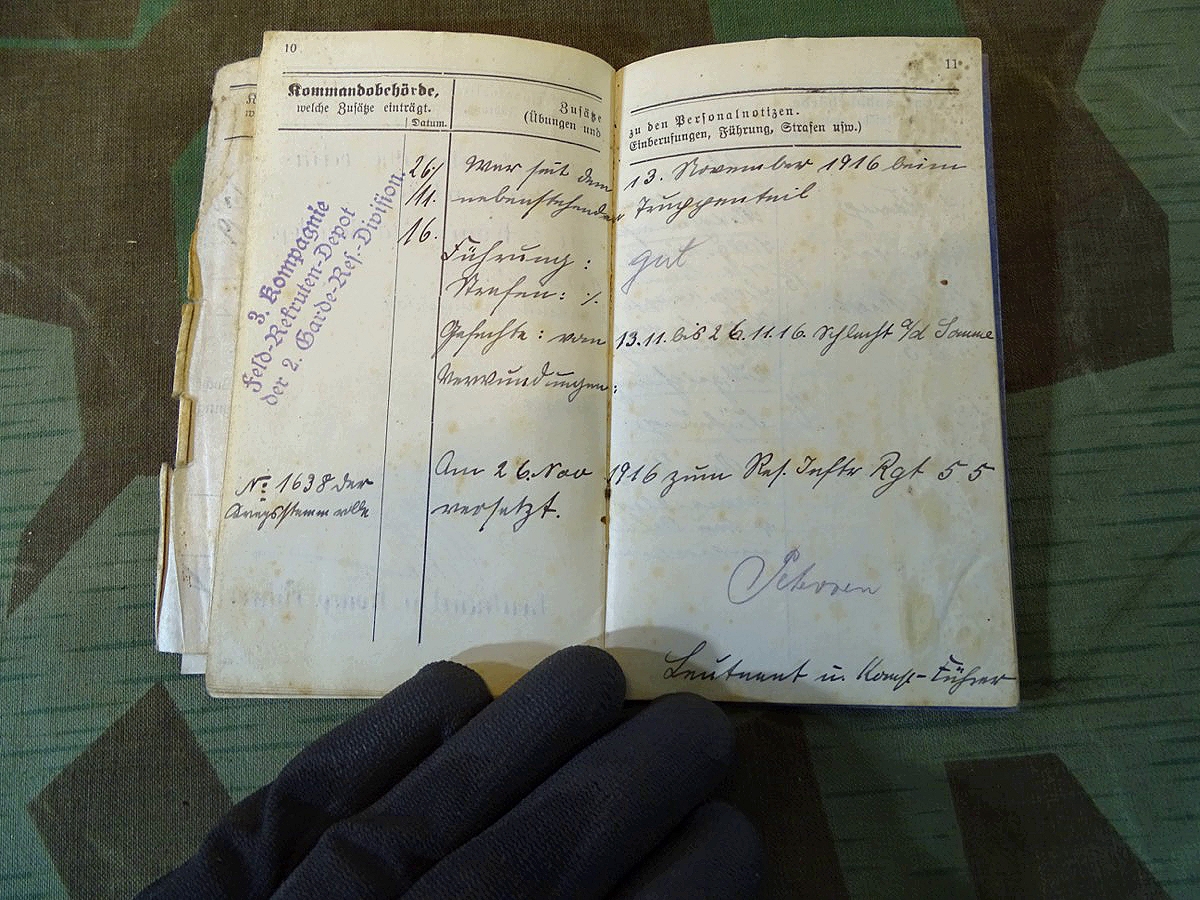 10
Kommandobehörde,
welche Zusätze einträgt.
Datum.
Zusätze
(Übungen und
3. Kompagnie
Feld-Rekruten-Depot
der 2. Garde-Res.-Division.
26./
11.
16.
War seit dem
nebenstehenden
Führung:
Strafen: ./.
Gefechte: vom
Verwundungen:
No 1638 der
Kriegsstammrolle
Am 26. Nov
versetzt.
11
zu den Personalnotizen.
Einberufungen, Führung, Strafen usw.)
13. November 1916 beim
Truppenteil
gut
13.11. bis 26.11.16. Schlacht a/d Somme
1916 zum Res. Inftr Rgt 55
Leutnant u. Komp.-Führer